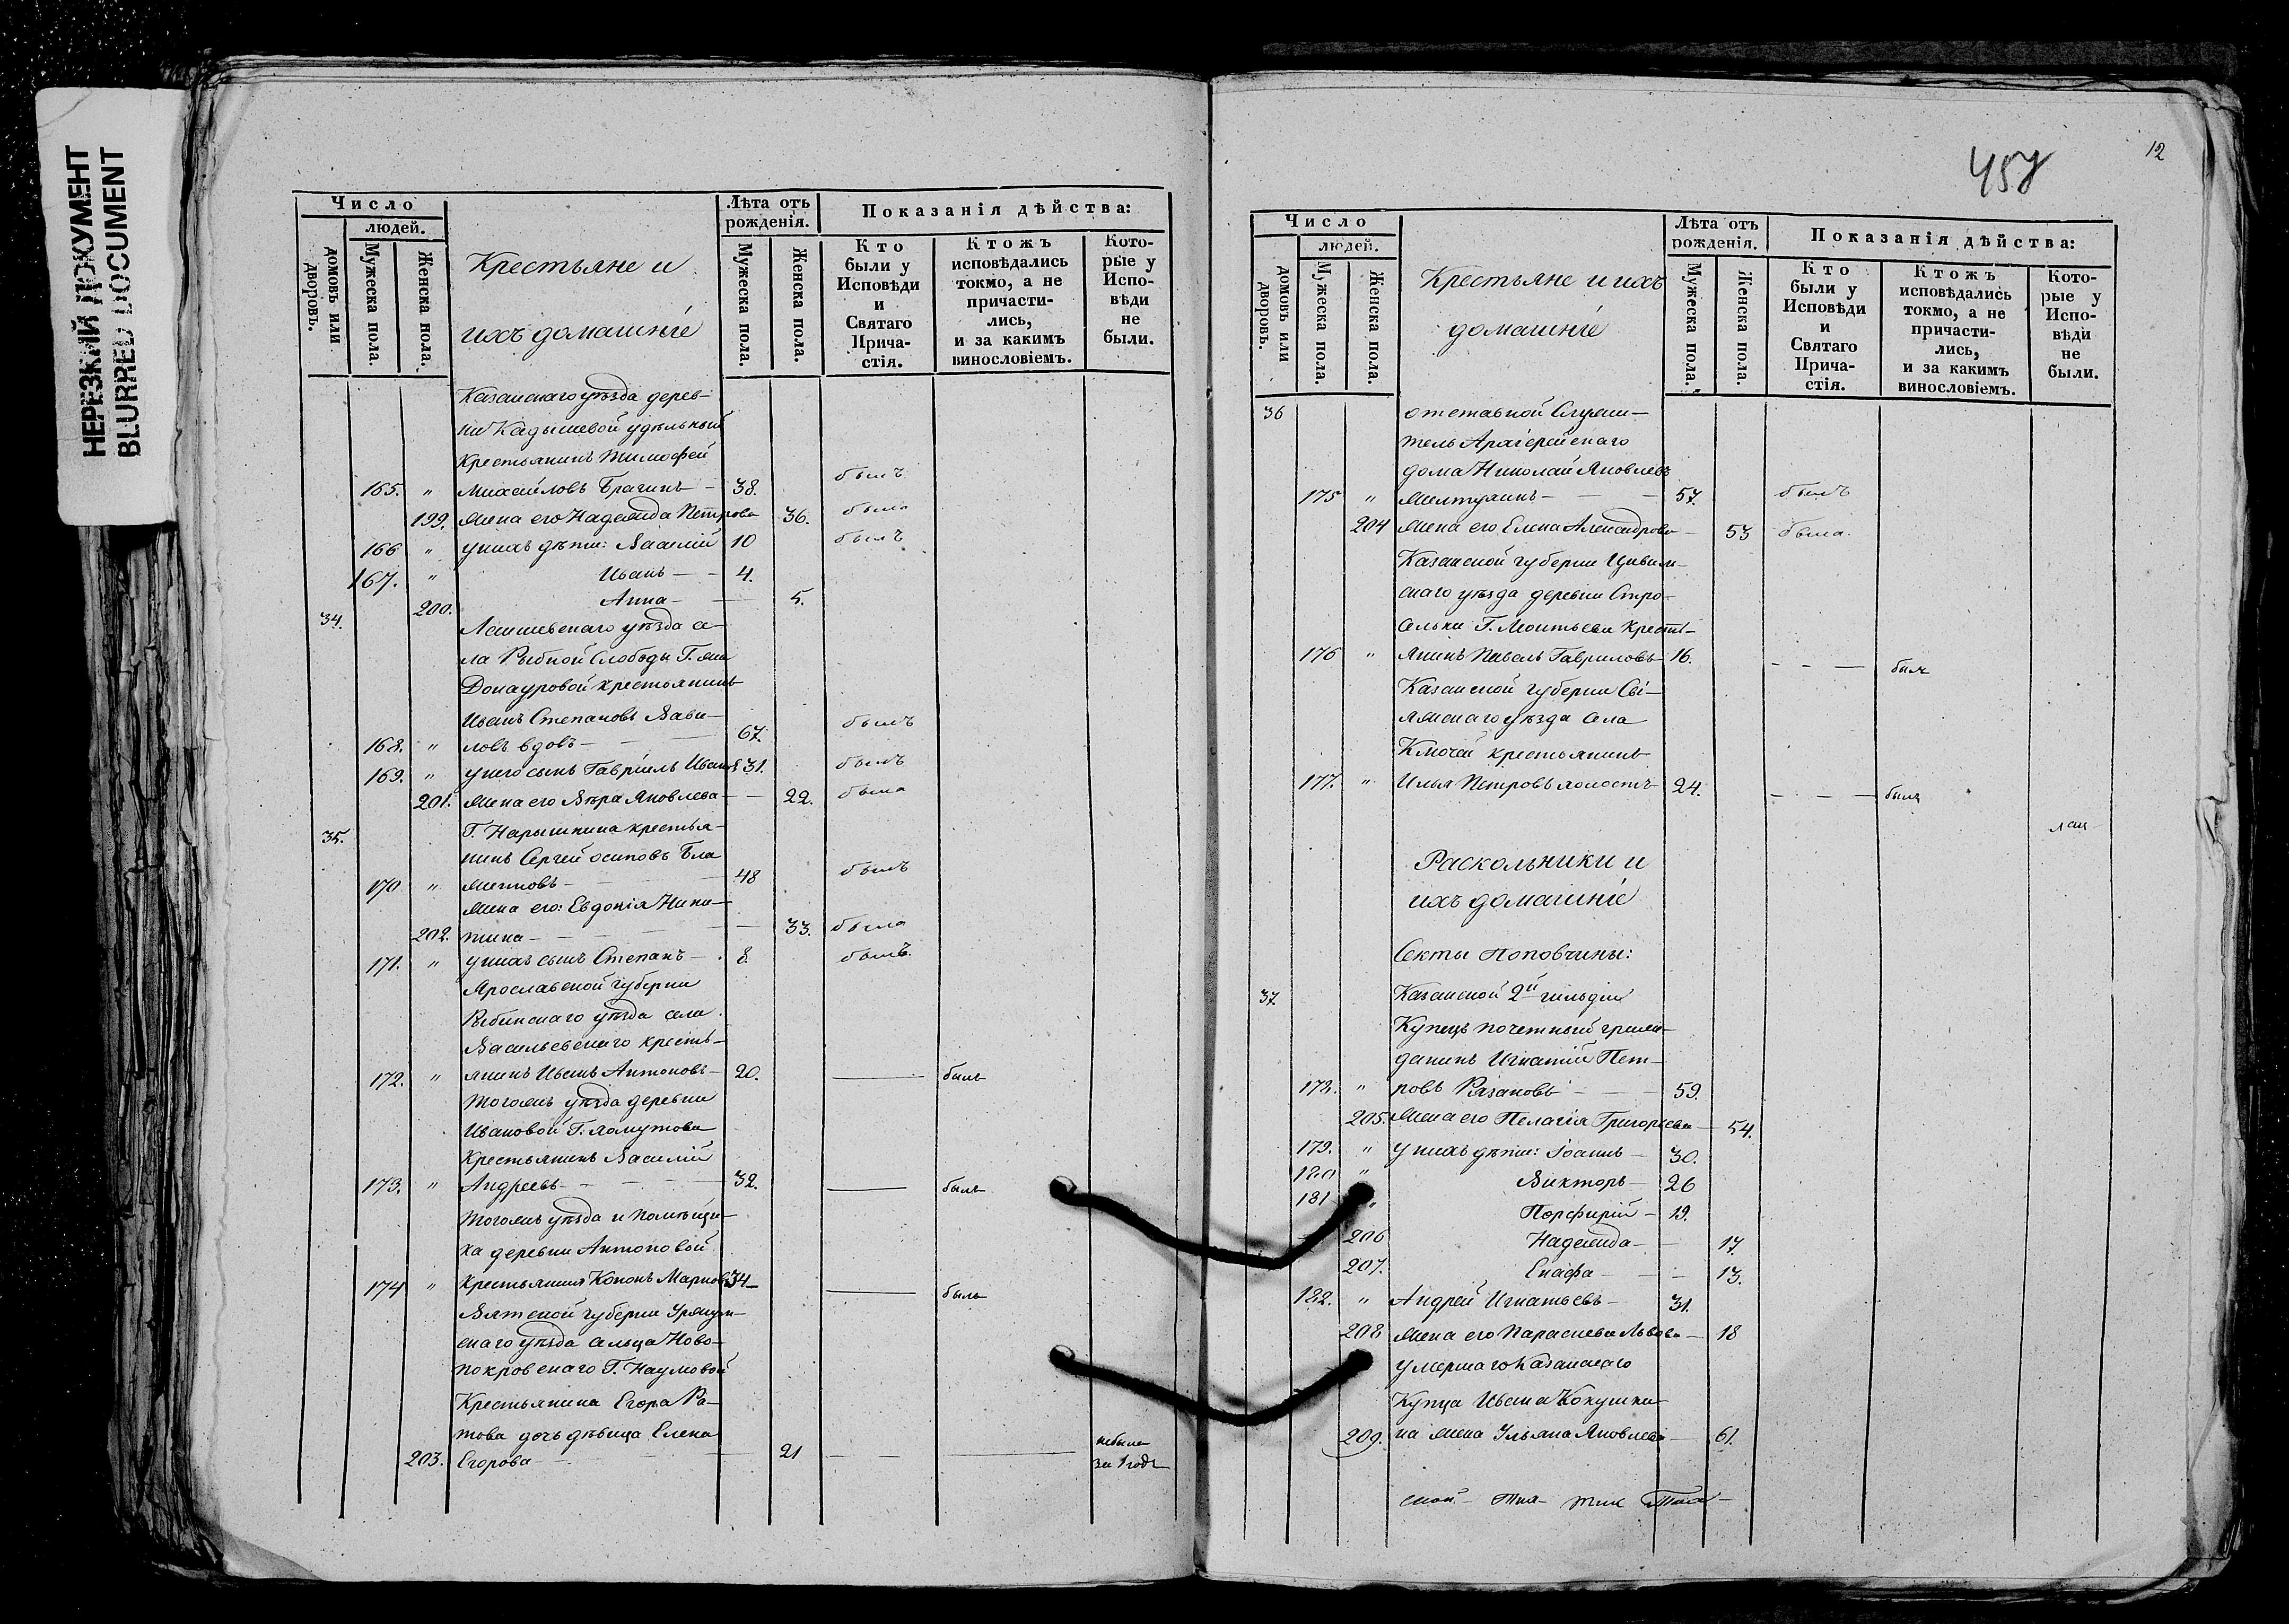 НЕРЕЗКИЙ ДОКУМЕНТ
BLURRED DOCUMENT
Число
людей.
домовъ или дворовъ.
Мужеска пола.
Женска пола.
Крестьяне и
ихъ домашніе
Лѣта отъ рожденія.
Мужеска пола.
Женска пола.
Показанія дѣйства:
Кто были у Исповѣди и Святаго Прича- стія.
Ктожъ исповѣдались токмо, а не причасти- лись, и за какимъ винословіемъ.
Кото- рые у Испо- вѣди не были.
Казанскаго уѣзда дерев-
ни Кадышевой удѣльный
крестьянинъ Тимофей
165. " Михайловъ Брагинъ - 38. былъ
199. Жена его Надежда Петрова 36. была
166 " У нихъ дѣти: Василій 10 былъ
167. " Иванъ - - 4.
200. Анна - 5.
34. Лаишевскаго уѣзда се-
ла Рыбной Слободы Г. жи
Донауровой крестьянинъ
Иванъ Степановъ Вави-
168. " ловъ вдовъ - 67. былъ
169. " У него сынъ Гавріилъ Ивановъ 31. былъ
201. Жена его Вѣра Яковлева - 22. была
35. Г. Нарышкина крестья-
нинъ Сергей Осиповъ
170 " 48 былъ
Жена его: Евдокія Ники-
202. тина - 33. была
171. " У нихъ сынъ Степанъ - 8. былъ.
Ярославской губерніи
Рыбинскаго уѣзда села
Васильевскаго кресть-
172. " янинъ Иванъ Антоновъ - 20. — былъ
Тогожъ уѣзда деревни
Ивановой Г.
Крестьянинъ Василій
173. " Андреевъ - 32. — былъ
Тогожъ уѣзда и помѣщи-
ка деревни Антоновой
174 " Крестьянинъ Кононъ Марковъ 34 — былъ
Вятской губерніи Уржум-
скаго уѣзда сельца Ново-
покровскаго Г. Наумовой
Крестьянина Егора
дочь дѣвица Елена
203. Егорова - 21 — — небыла
за 1 годъ
12
Число
людей.
домовъ или дворовъ.
Мужеска пола.
Женска пола.
Крестьяне и ихъ
домашніе
Лѣта отъ рожденія.
Мужеска пола.
Женска пола.
Показанія дѣйства:
Кто были у Исповѣди и Святаго Прича- стія.
Ктожъ исповѣдались токмо, а не причасти- лись, и за какимъ винословіемъ.
Кото- рые у Испо- вѣди не были.
36 отставной Служи-
тель Архіерейскаго
дома Николай Яковлевъ
175 " 57. былъ
204 Жена его Елена Александрова - 53 была.
Казанской губерніи Цивиль-
скаго уѣзда деревни
Г. кресть-
176 " янинъ Павелъ Гавриловъ 16. - - — былъ
Казанской губерніи Сві-
яжскаго уѣзда села
Ключей крестьянинъ
177. " Илья Петровъ холостъ 24. — - — былъ
Раскольники и
ихъ домашніе
Секты Поповчины:
37. Казанской 2й гильдіи
Купецъ почетный граж-
данинъ Игнатій Пет-
178. " ровъ Рязановъ - 59.
205. Жена его Пелагія Григорьева - 54.
179. " У нихъ дѣти: Іоаннъ - 30.
180 " Викторъ - 26
181 " Порфирій - 19.
206 Надежда - 17.
207. - 13.
182. " Андрей Игнатьевъ - 31.
208 Жена его Параскева Львова - 18
умершаго Казанскаго
Купца Ивана Кокушки-
209. на жена Ульяна Яковлева - 61.